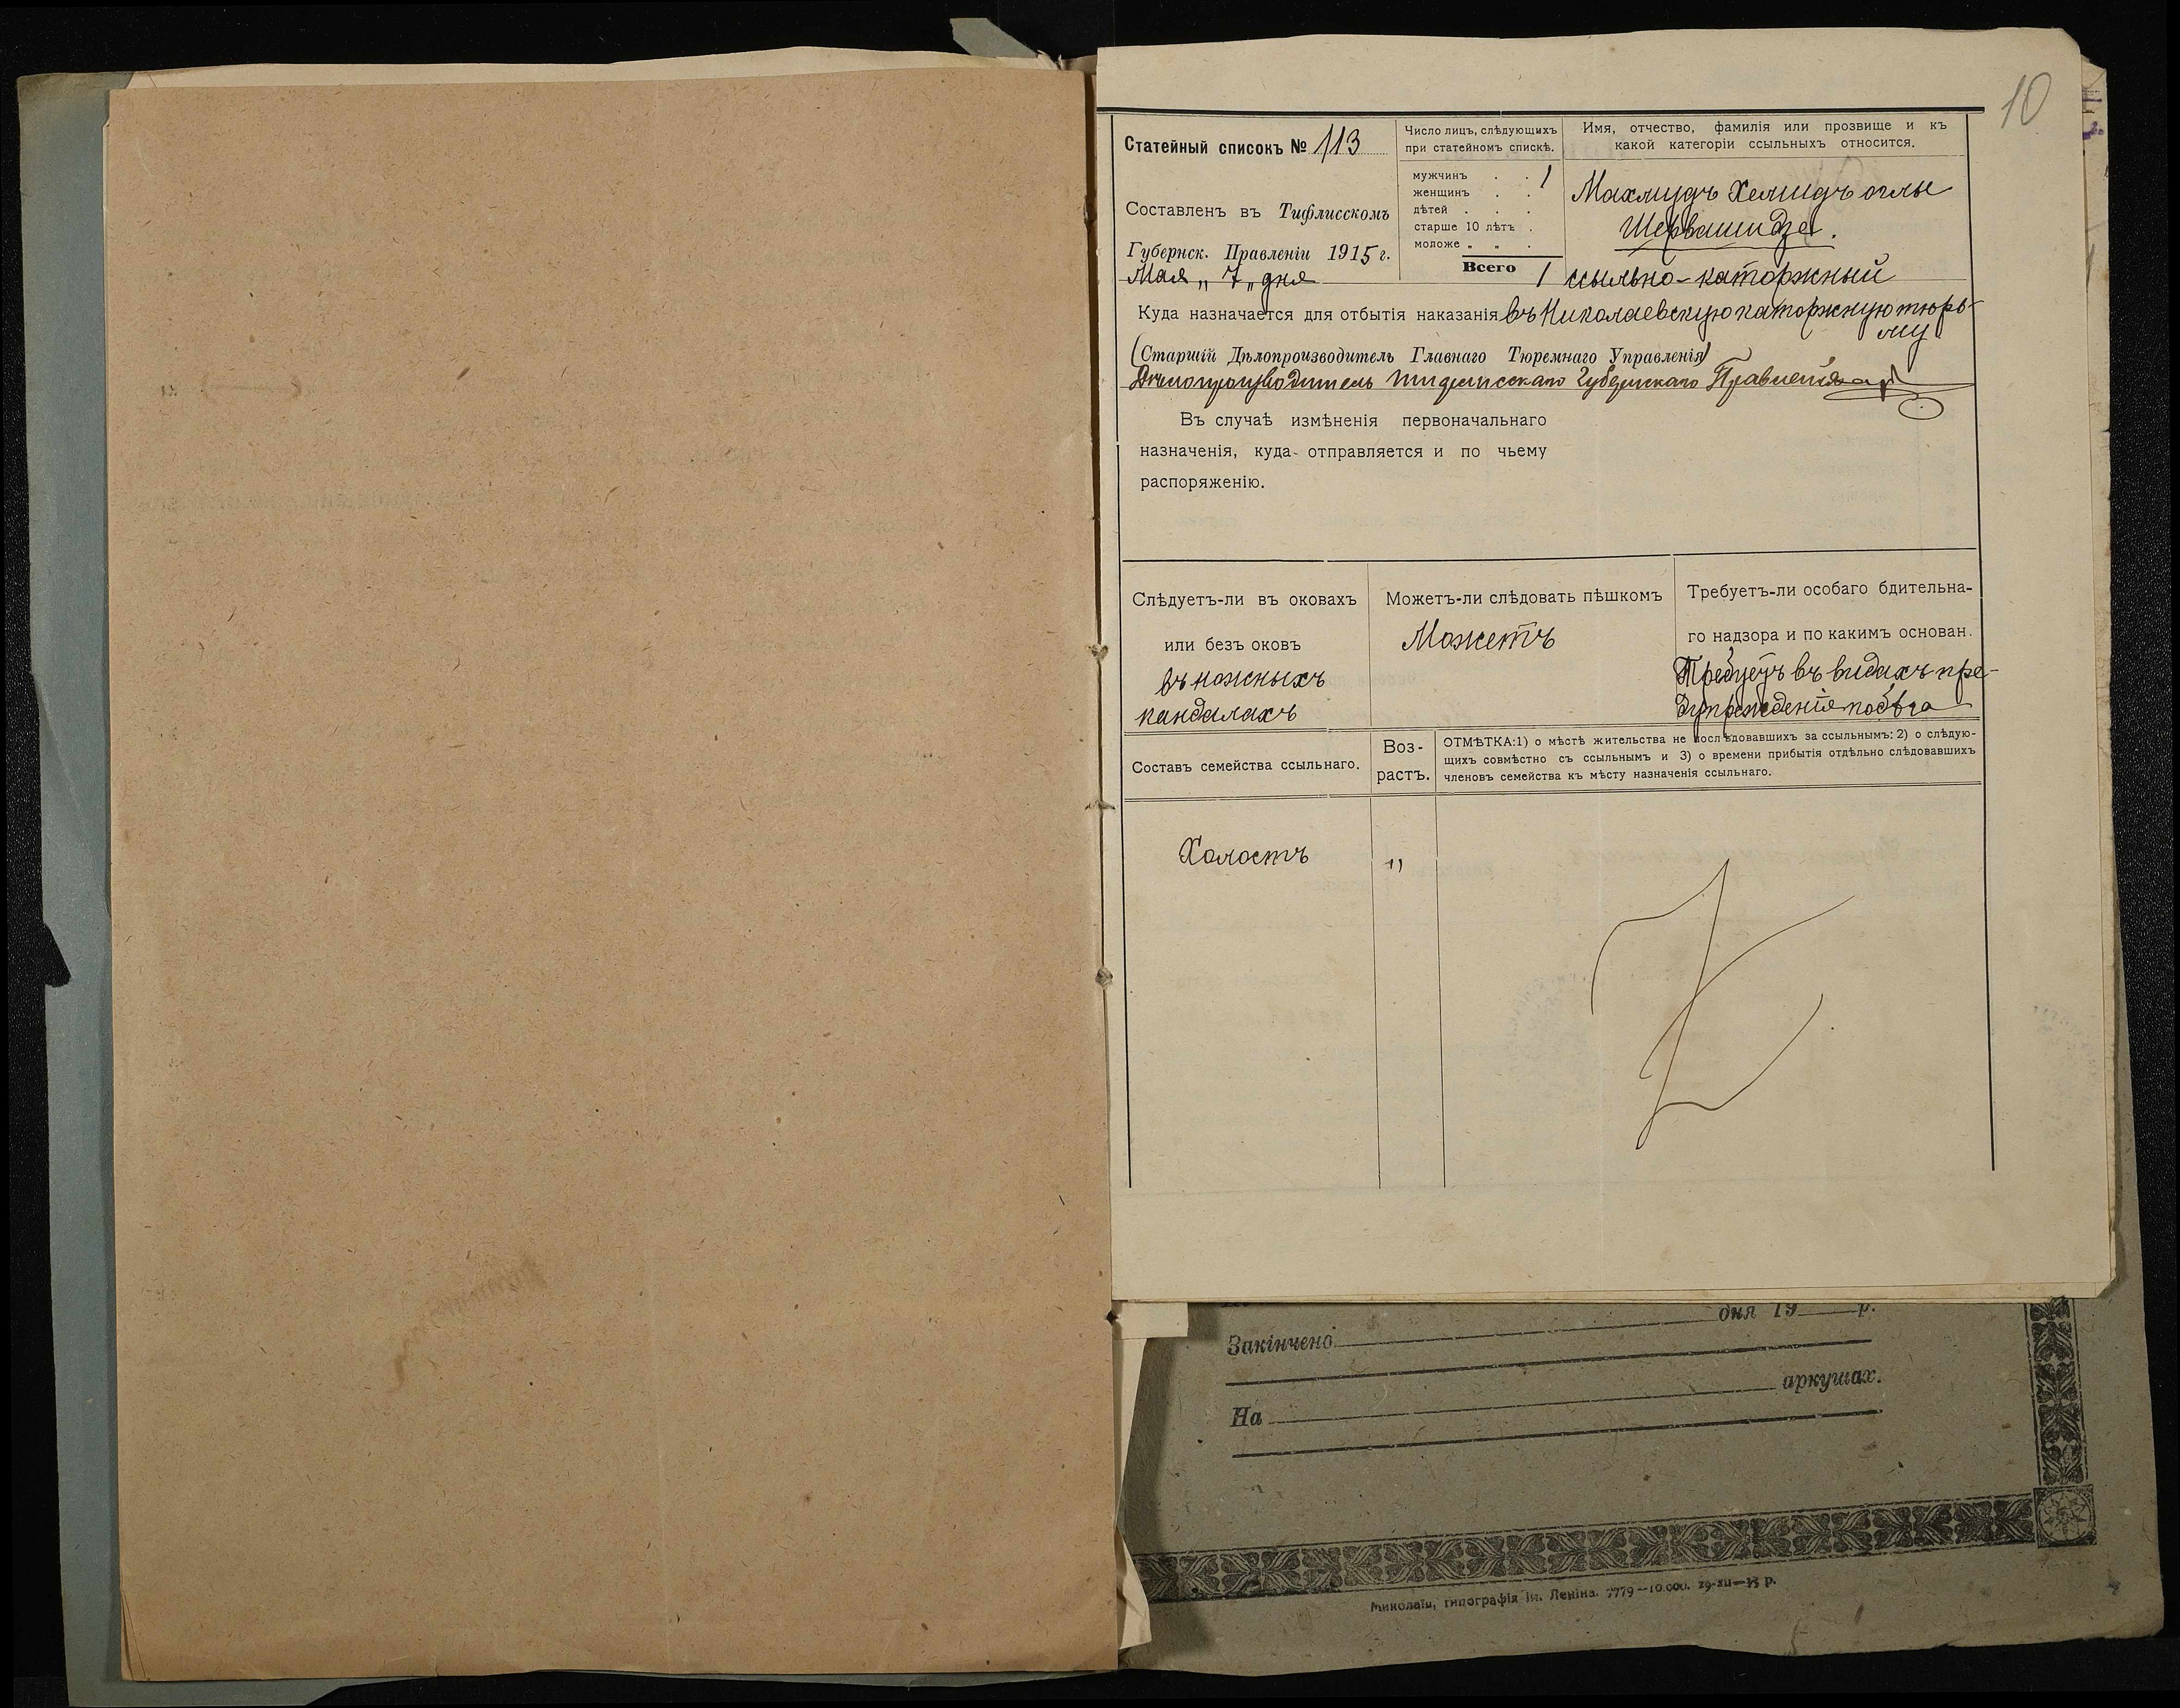 10
Статейный списокъ № 113
Составленъ въ Тифлисскомъ
Губернск. Правленіи 1915 г.
Мая „ 7 „ дня
Число лицъ, слѣдующихъ
при статейномъ спискѣ.
мужчинъ . . 1
женщинъ . .
дѣтей . . .
старше 10 лѣтъ .
моложе „ „ .
Всего 1
Имя, отчество, фамилія или прозвище и къ
какой категоріи ссыльныхъ относится.
Махмудъ Хемидъ оглы
Шервашидзе.
ссыльно-каторжный
Куда назначается для отбытія наказанія въ Николаевскую каторжную тюрь-
му
(Старшій Дѣлопроизводитель Главнаго Тюремнаго Управленія)
Дѣлопроизводитель Тифлисскаго Губернскаго Правленія
Въ случаѣ измѣненія первоначальнаго
назначенія, куда отправляется и по чьему
распоряженію.
Слѣдуетъ-ли въ оковахъ
или безъ оковъ
въ ножныхъ
кандалахъ
Можетъ-ли слѣдовать пѣшкомъ
Можетъ
Требуетъ-ли особаго бдительна-
го надзора и по какимъ основан.
Требуетъ въ видахъ пре-
дупрежденія побѣга
Составъ семейства ссыльнаго.
Воз-
растъ.
ОТМѢТКА:1) о мѣстѣ жительства не послѣдовавшихъ за ссыльнымъ: 2) о слѣдую-
щихъ совмѣстно съ ссыльнымъ и 3) о времени прибытія отдѣльно слѣдовавшихъ
членовъ семейства къ мѣсту назначенія ссыльнаго.
Холостъ
„
дня 19 р.
Закінчено
аркушах.
На
Миколаїв, типографія ім. Леніна. 7779—10.000. 29-XII—